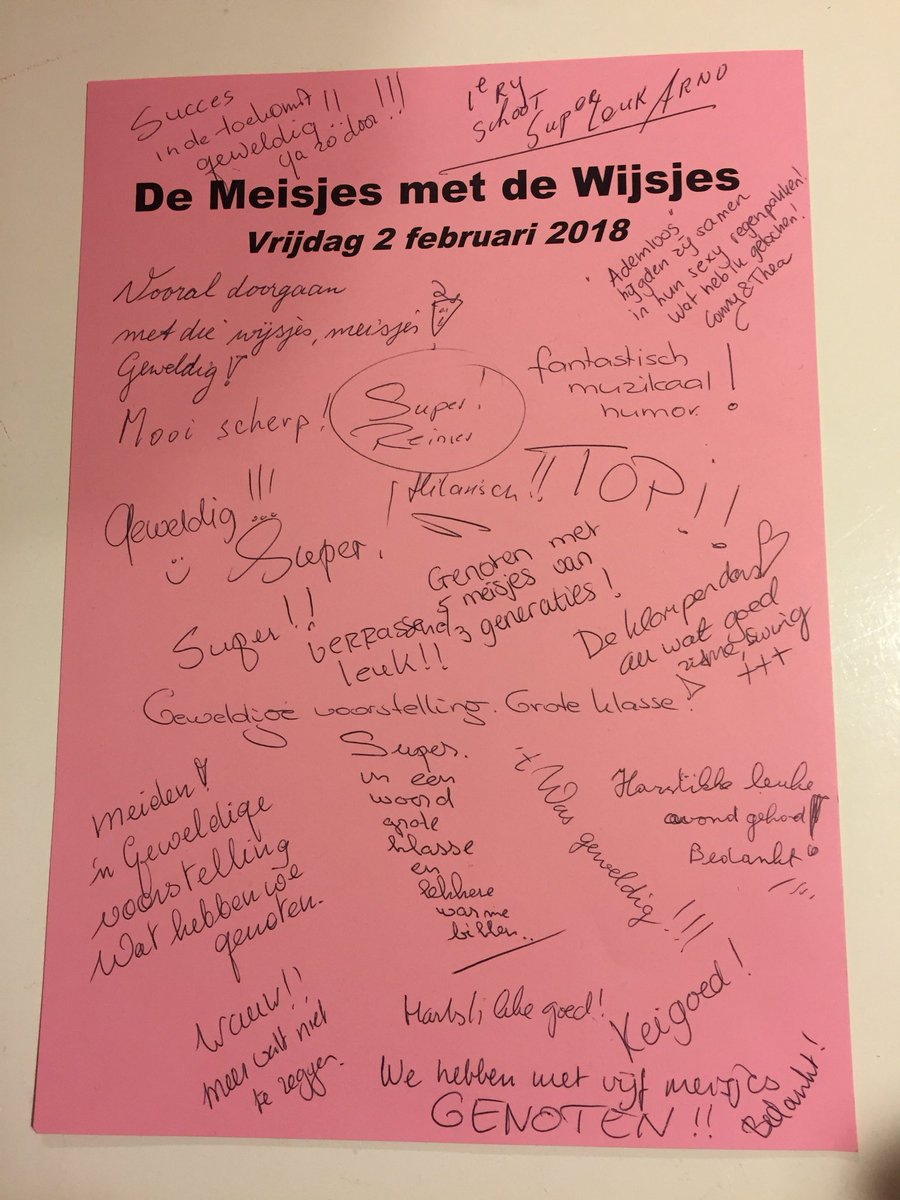 Succes
in de toekomst !! !!!
geweldig
ga zo door!
1e Ry
schoot
Super Leuk ARNO
De Meisjes met de Wijsjes
Vrijdag 2 februari 2018
"Ademloos"
hijgden zij samen
in hun sexy regenpakken!
Wat heb ik gelachen!
Conny & Thea
Vooral doorgaan
met die wijsjes, meisjes
Geweldig!
Mooi scherp!
Super!
Reinier
fantastisch
muzikaal
humor!
Geweldig!!!
Super.
Hilarisch!!
TOP!!
Genoten met
5 meisjes van
3 generaties!
Super!!
Verrassend
leuk!!
De klompendans
au wat goed
swing
+++
Geweldige voorstelling. Grote klasse!
Meiden!
'n Geweldige
voorstelling
Wat hebben we
genoten.
Super.
in een
woord
grote
klasse
en
lekkere
warme
billen..
't Was geweldig!!!
Hartstikke leuke
avond gehad!
Bedankt!
Wauw!!
meer valt niet
te zeggen.
Hartstikke goed!
Keigoed!
We hebben met vijf meisjes
GENOTEN!!
Bedankt!